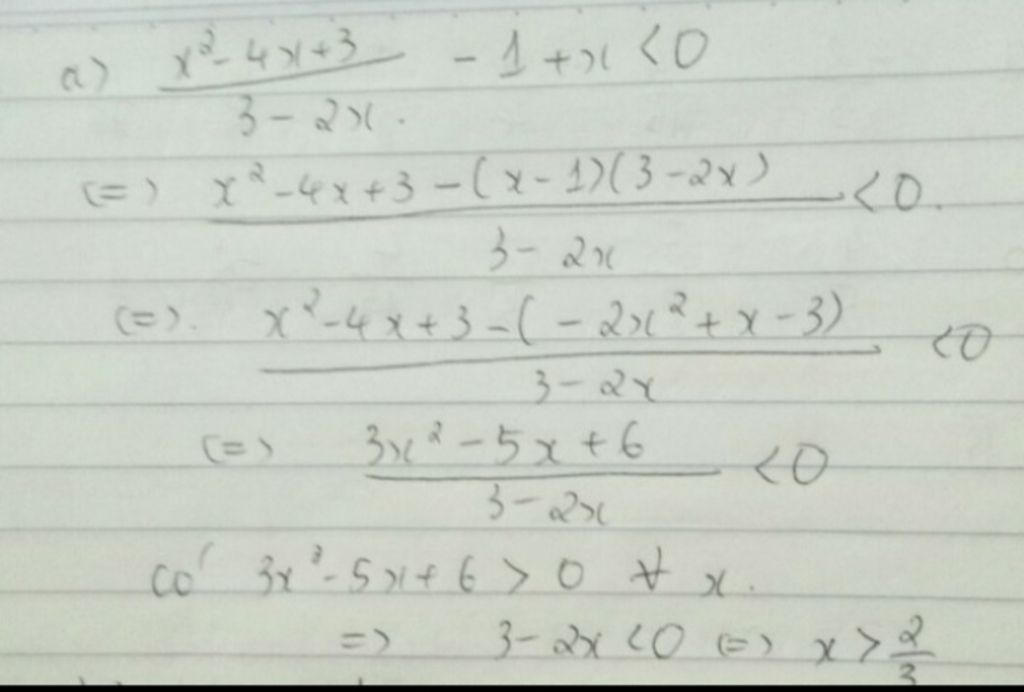 a) (x² - 4x + 3)/(3 - 2x) - 1 + x < 0
(=) (x² - 4x + 3 - (x - 1)(3 - 2x))/(3 - 2x) < 0.
(=). (x² - 4x + 3 - (-2x² + x - 3))/(3 - 2x) < 0
(=) (3x² - 5x + 6)/(3 - 2x) < 0
có 3x² - 5x + 6 > 0 ∀ x.
=> 3 - 2x < 0 (=) x > 2/3